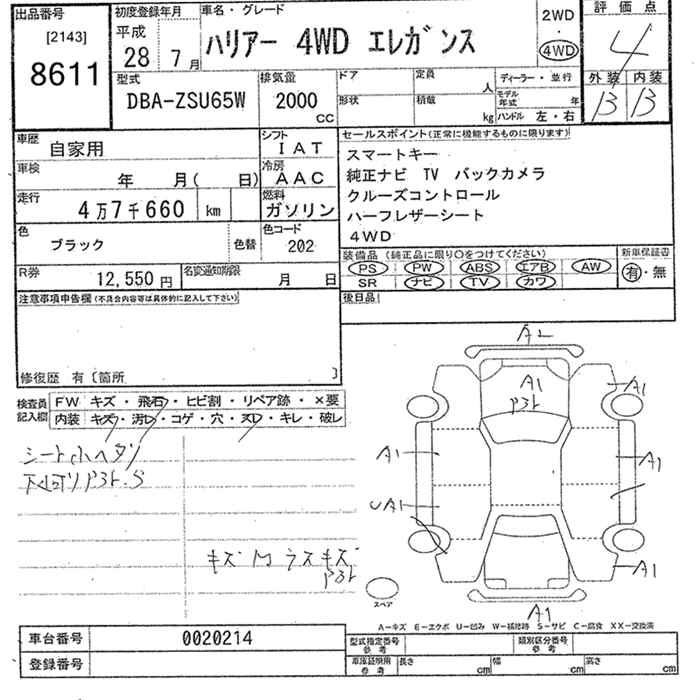 出品番号
[2143]
8611
初度登録年月
平成
28 7月
車名・グレード
ハリアー 4WD エレガンス
2WD
4WD
評価点
4
外装 内装
B B
型式
DBA-ZSU65W
排気量
2000
cc
ドア
定員
人
形状
積載
kg
ディーラー・並行
モデル年式 年
ハンドル 左・右
車歴
自家用
シフト
IAT
車検
年 月( 日)
冷房
AAC
走行
4万7千660 km
燃料
ガソリン
色
ブラック
色替
色コード
202
R券
12,550円
名変通知期限
月 日
セールスポイント(正常に機能するものに限ります)
スマートキー
純正ナビ TV バックカメラ
クルーズコントロール
ハーフレザーシート
4WD
装備品 (純正品に限り○をつけてください)
PS PW ABS エアB AW
SR ナビ TV カワ
新車保証書
有・無
後日品
注意事項申告欄(不具合内容等は具体的に記入して下さい)
修復歴 有〔箇所 〕
検査員記入欄
FW キズ・飛石・ヒビ割・リペア跡・×要
内装 キズ・汚レ・コゲ・穴・スレ・キレ・破レ
シート小ヘタリ
下回り P3ト.S
キズ M ラスキズ
P3ト
A2
A1
P3ト
A1
A1
A1
UA1
A1
A1
スペア
A-キズ E-エクボ U-凹み W-補修跡 S-サビ C-腐食 XX-交換済
車台番号
0020214
登録番号
型式指定番号
参考
類別区分番号
参考
車庫証明用
参考
長さ cm
幅 cm
高さ cm